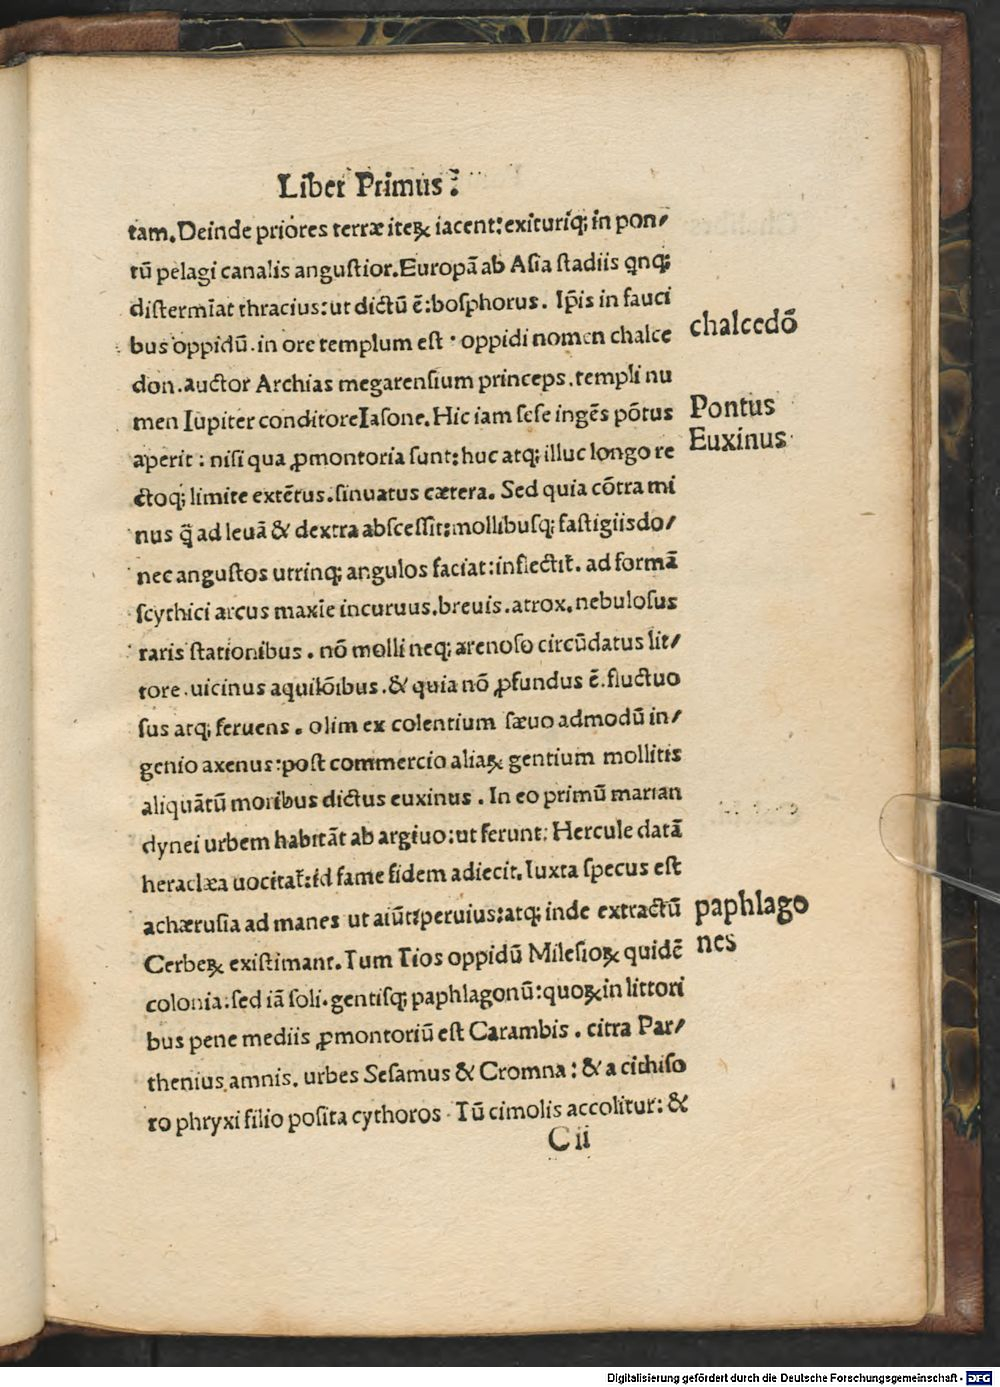 Liber Primus.
tam. Deinde priores terræ iteꝝ iacent: exituriq; in pon/
tū pelagi canalis angustior. Europā ab Asia stadiis qnq;
distermīat thracius: ut dictū ē: bosphorus. Ip̄is in fauci
bus oppidū. in ore templum est · oppidi nomen chalce
don. auctor Archias megarensium princeps. templi nu
men Iupiter conditore Iasone. Hic iam sese ingēs pōtus
aperit: nisi qua ꝓmontoria sunt: huc atq; illuc longo re
ctoq; limite extētus. sinuatus cætera. Sed quia cōtra mi
nus q̄ ad leuā & dextra abscessit: mollibusq; fastigiis do/
nec angustos utrinq; angulos faciat: inflectit̄. ad formā
scythici arcus maxīe incuruus. breuis. atrox. nebulosus
raris stationibus. nō molli neq; arenoso circūdatus lit/
tore. uicinus aquilōibus. & quia nō ꝓfundus ē. fluctuo
sus atq; feruens. olim ex colentium sæuo admodū in/
genio axenus: post commercio aliaꝝ gentium mollitis
aliquātū moribus dictus euxinus. In eo primū marian
dynei urbem habitāt ab argiuo: ut ferunt: Hercule datā
heraclæa uocitat̄: id fame fidem adiecit. Iuxta specus est
achærusia ad manes ut aiūt: peruius: atq; inde extractū
Cerbeꝝ existimant. Tum Tios oppidū Milesioꝝ quidē
colonia: sed iā soli. gentisq; paphlagonū: quoꝝ in littori
bus pene mediis ꝓmontoriū est Carambis. citra Par/
thenius amnis. urbes Sesamus & Cromna: & a cithiso
ro phryxi filio posita cythoros · Tū cimolis accolitur: &
C ii
chalcedō
Pontus
Euxinus
paphlago
nes
Digitalisierung gefördert durch die Deutsche Forschungsgemeinschaft - DFG